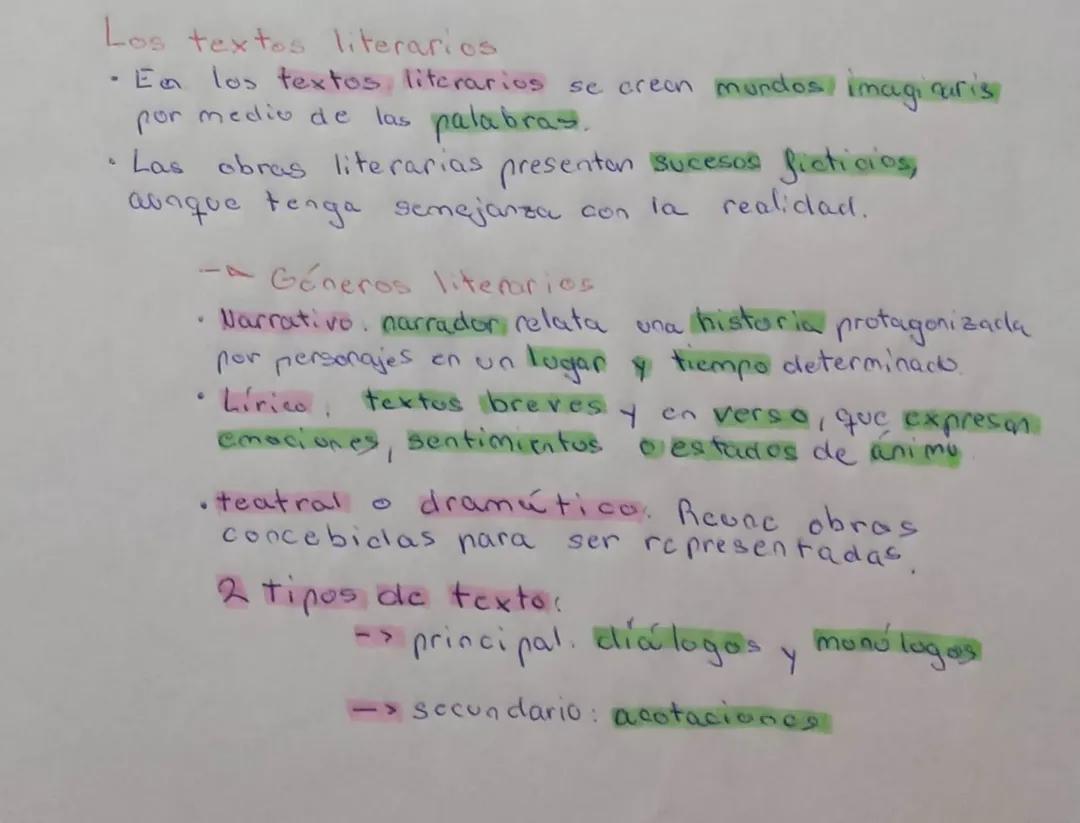 Los textos literarios
• En los textos literarios se crean mundos imaginaris
por medio de las palabras.
• Las obras literarias presentan sucesos ficticios,
aunque tenga semejanza con la realidad.
→ Géneros literarios
• Narrativo. narrador relata una historia protagonizada
por personajes en un lugar y tiempo determinado.
• Lírico, textos breves y en verso, que expresan
emociones, sentimientos o estados de ánimo
• teatral o dramático. Reúne obras
concebidas para ser representadas.
2 tipos de texto:
-> principal. diálogos y monólogos
-> secundario: acotaciones